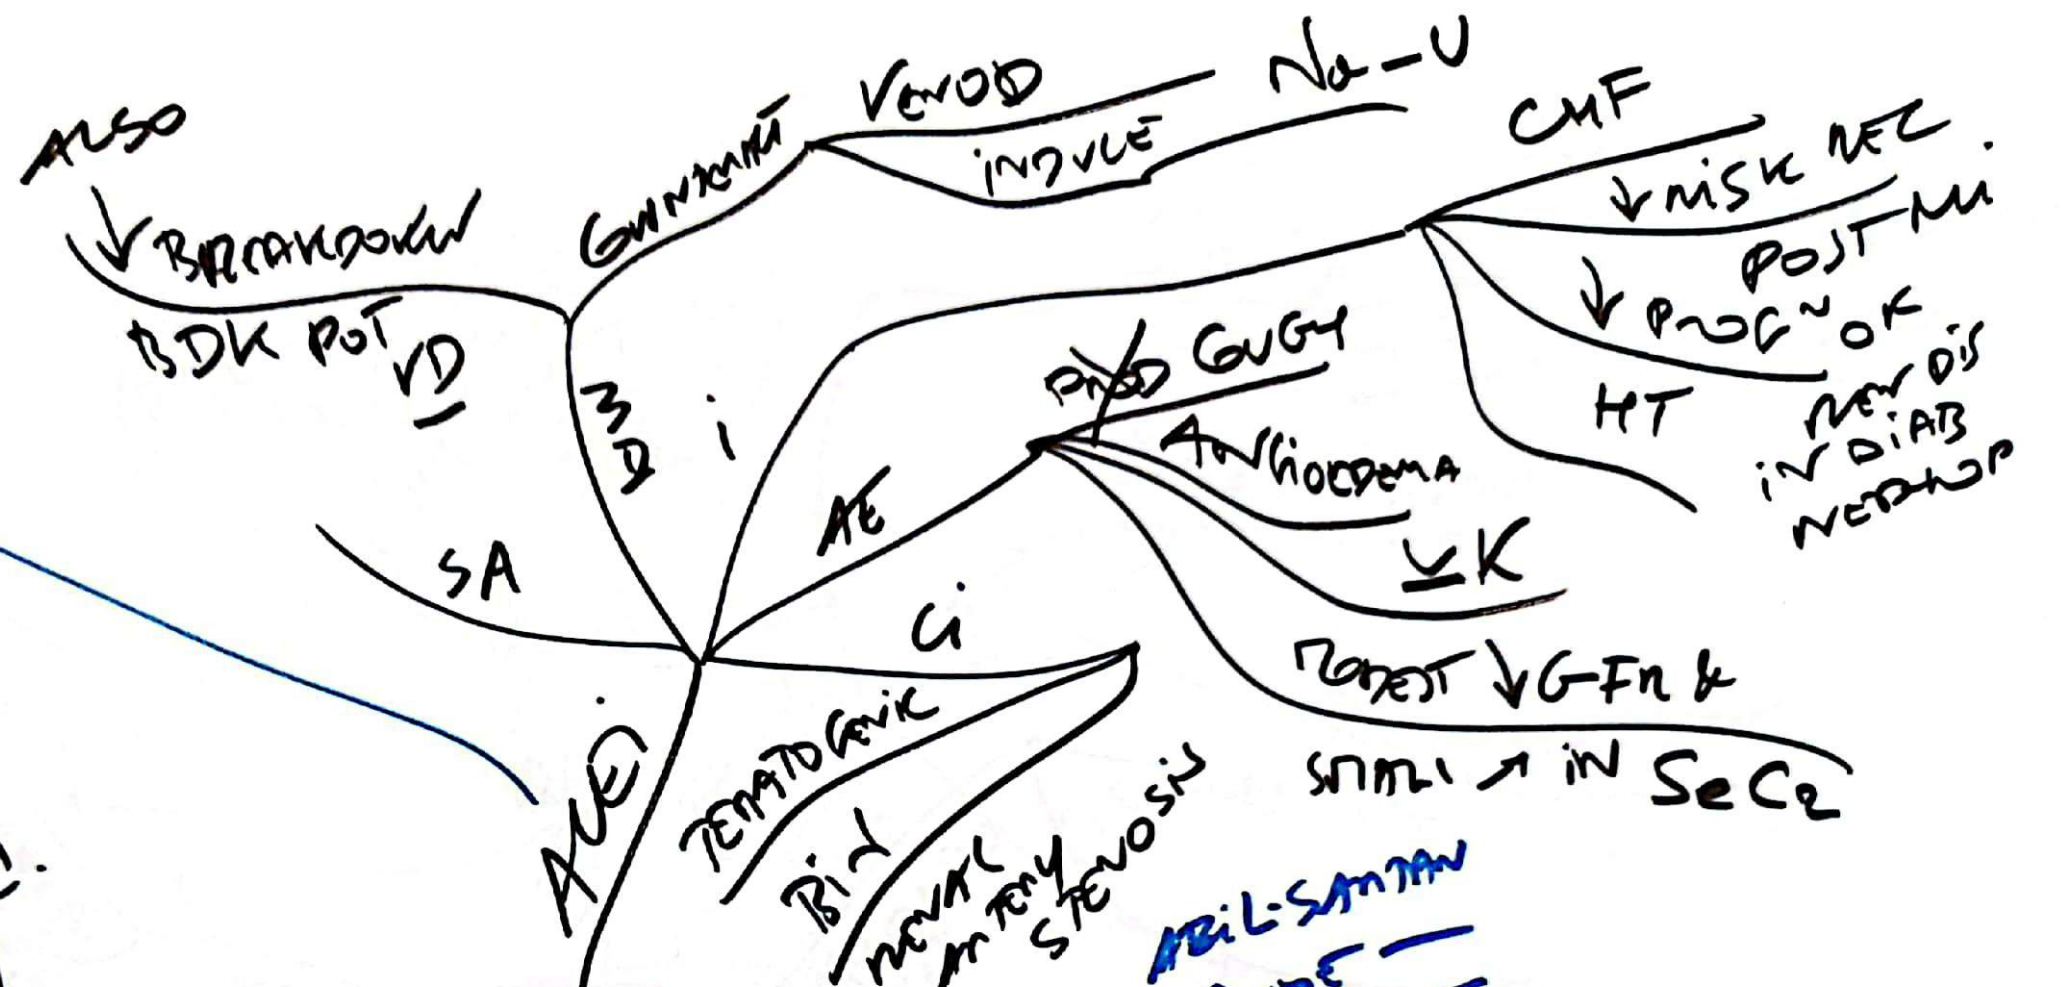 ALSO
↓ BREAKDOWN
BDK POT
VD
SA
VENOD
INDUCE
Na-U
i
CHF
↓ RISK REC
POST-MI.
↓ PROG^N OK
REN DIS
IN DIAB
NEPHROP
HT
AE
PROD COUGH
ANGIOEDEMA
K
MODEST ↓ GFR &
SMALL ↗ IN SeCr
Ci
TERATOGENIC
Bil
RENAL
ARTERY
STENOSIS
ACEi